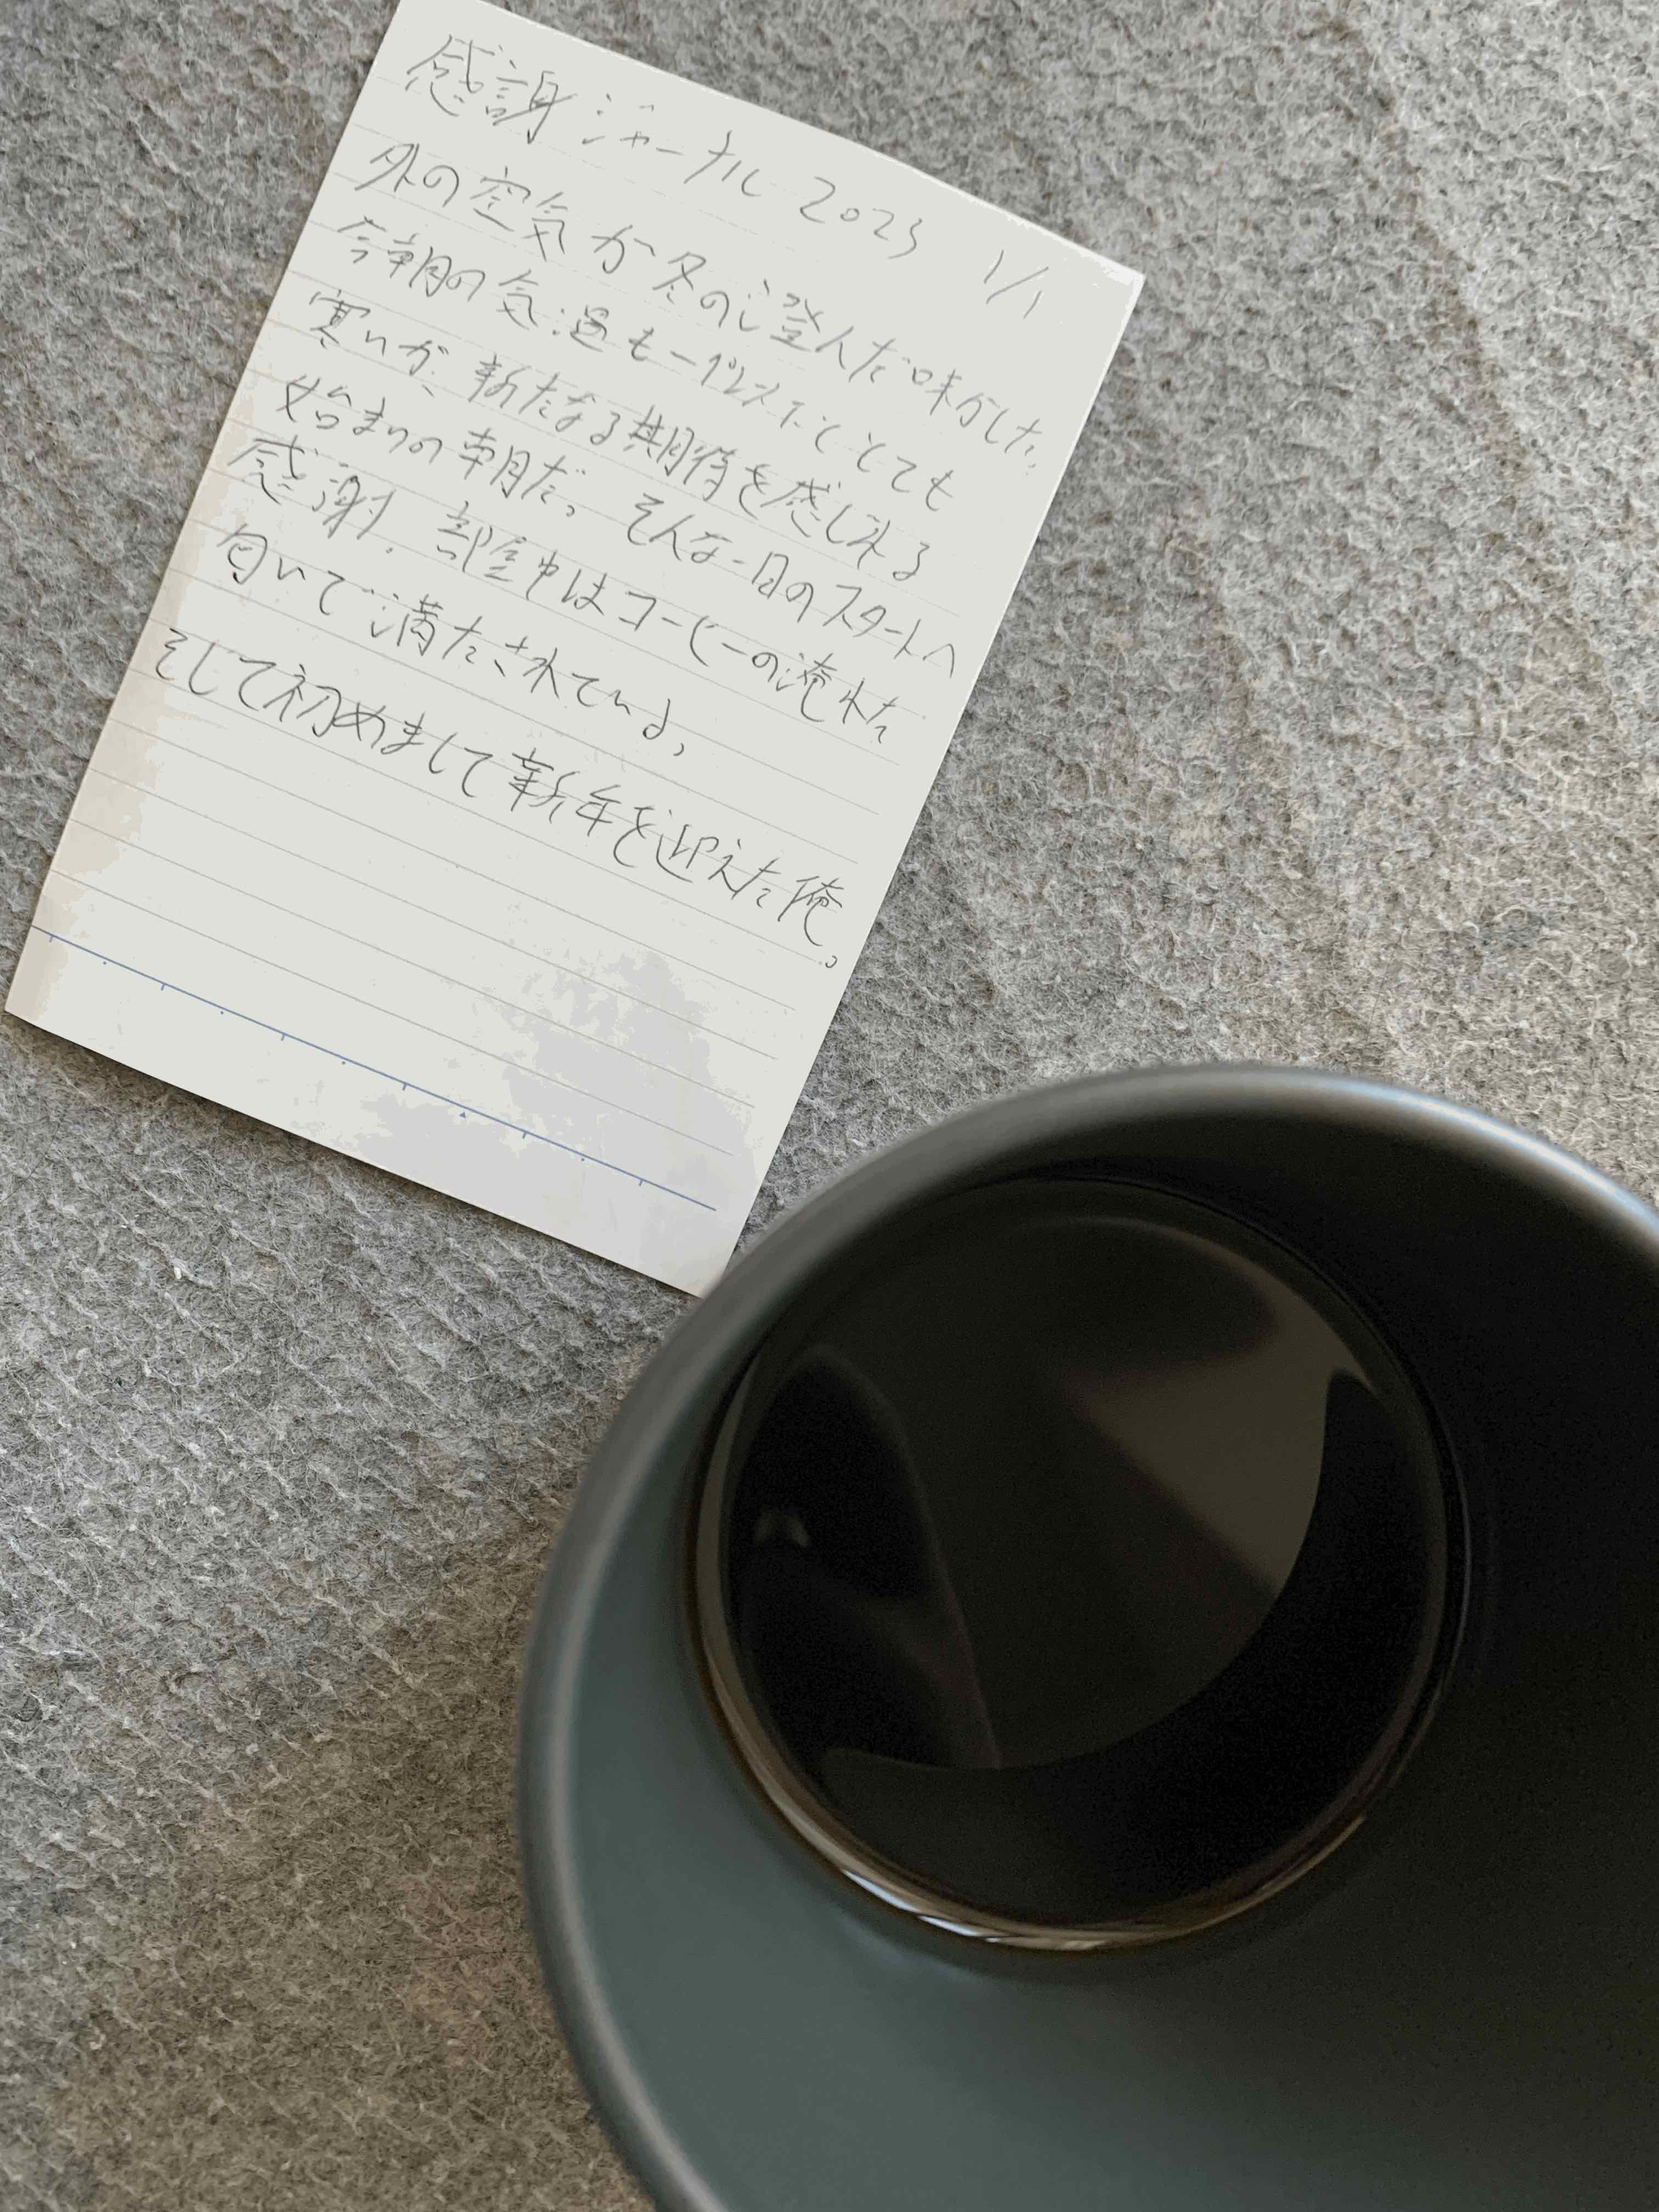 感謝ジャーナル 2023 1/1
外の空気が冬の澄んだ味がした。
今朝の気温も一℃とても
寒いが、新たなる期待を感じれる
始まりの朝だ。そんな一日のスタートへ
感謝。部屋中はコーヒーの淹れた
匂いで満たされている。
そして初めまして新年を迎えた俺。